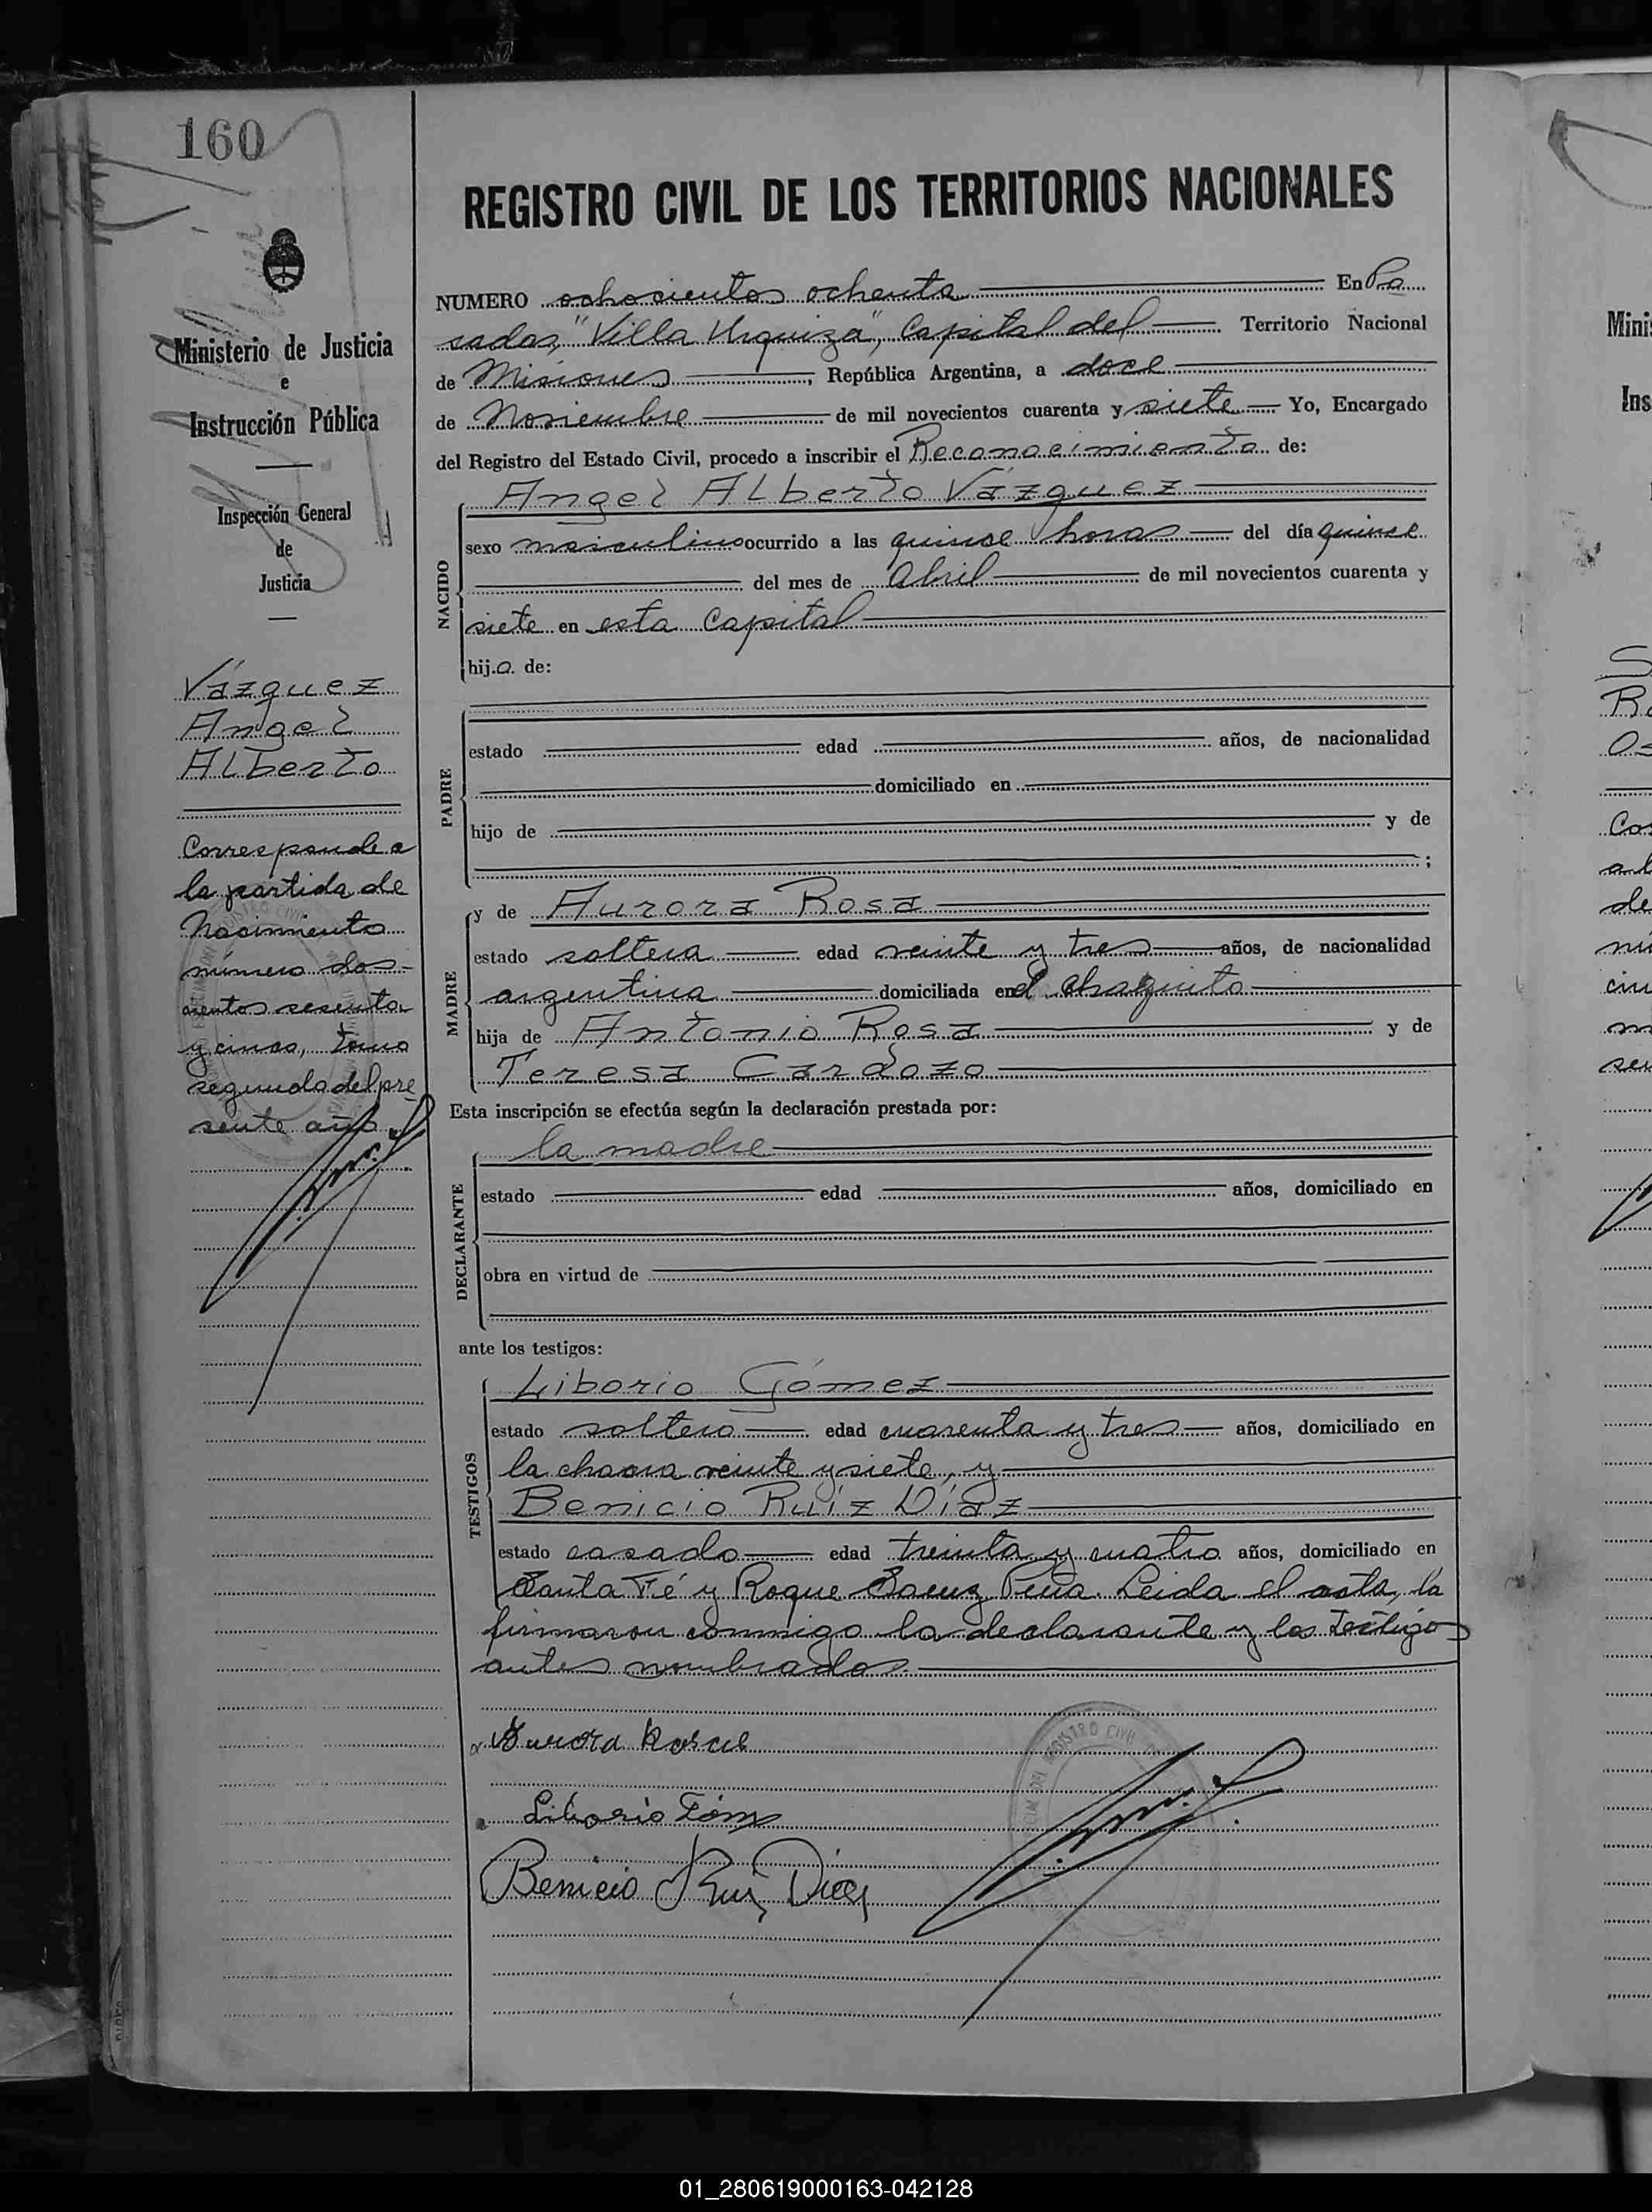 160
REGISTRO CIVIL DE LOS TERRITORIOS NACIONALES
Ministerio de Justicia
e
Instrucción Pública
Inspección General
de
Justicia
Vázquez
Angel
Alberto
Corresponde a
la partida de
Nacimiento
número dos-
cientos sesenta
y cinco, tomo
segundo del pre
sente año
NUMERO ochocientos ochenta En Po
sadas, "Villa Urquiza", Capital del Territorio Nacional
de Misiones, República Argentina, a doce
de Noviembre de mil novecientos cuarenta y siete Yo, Encargado
del Registro del Estado Civil, procedo a inscribir el Reconocimiento de:
Angel Alberto Vázquez
NACIDO
sexo masculino ocurrido a las quince horas del día quince
del mes de Abril de mil novecientos cuarenta y
siete en esta Capital
hijo de:
PADRE
estado edad años, de nacionalidad
domiciliado en
hijo de y de
;
MADRE
y de Aurora Rosa
estado soltera edad veinte y tres años, de nacionalidad
argentina domiciliada en el chaquito
hija de Antonio Rosa y de
Teresa Cardozo
Esta inscripción se efectúa según la declaración prestada por:
DECLARANTE
la madre
estado edad años, domiciliado en
obra en virtud de
ante los testigos:
TESTIGOS
Liborio Gómez
estado soltero edad cuarenta y tres años, domiciliado en
la chacra veinte y siete, y
Benicio Ruíz Díaz
estado casado edad treinta y cuatro años, domiciliado en
Santa Fé y Roque Saenz Peña. Leida el acta, la
firmaron conmigo la declarante y los testigos
antes nombrados.
Aurora Rosa
Liborio Gómez
Benicio Ruiz Diaz
REGISTRO CIVIL
01_280619000163-042128